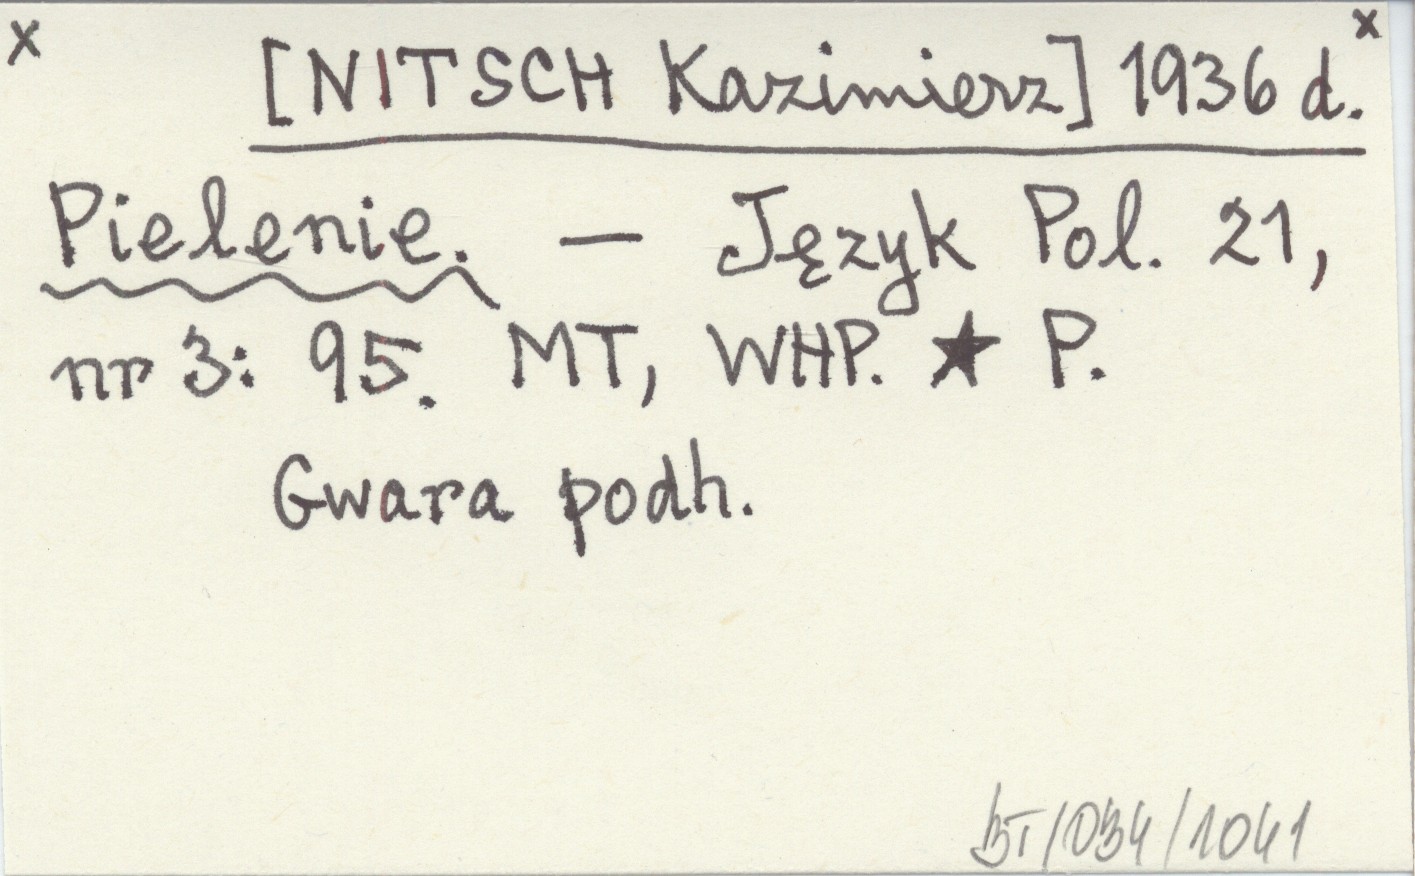 x [NITSCH Kazimierz] 1936 d. x
Pielenie. — Język Pol. 21,
nr 3: 95. MT, WHP. ★ P.
Gwara podh.
BT/034/1041